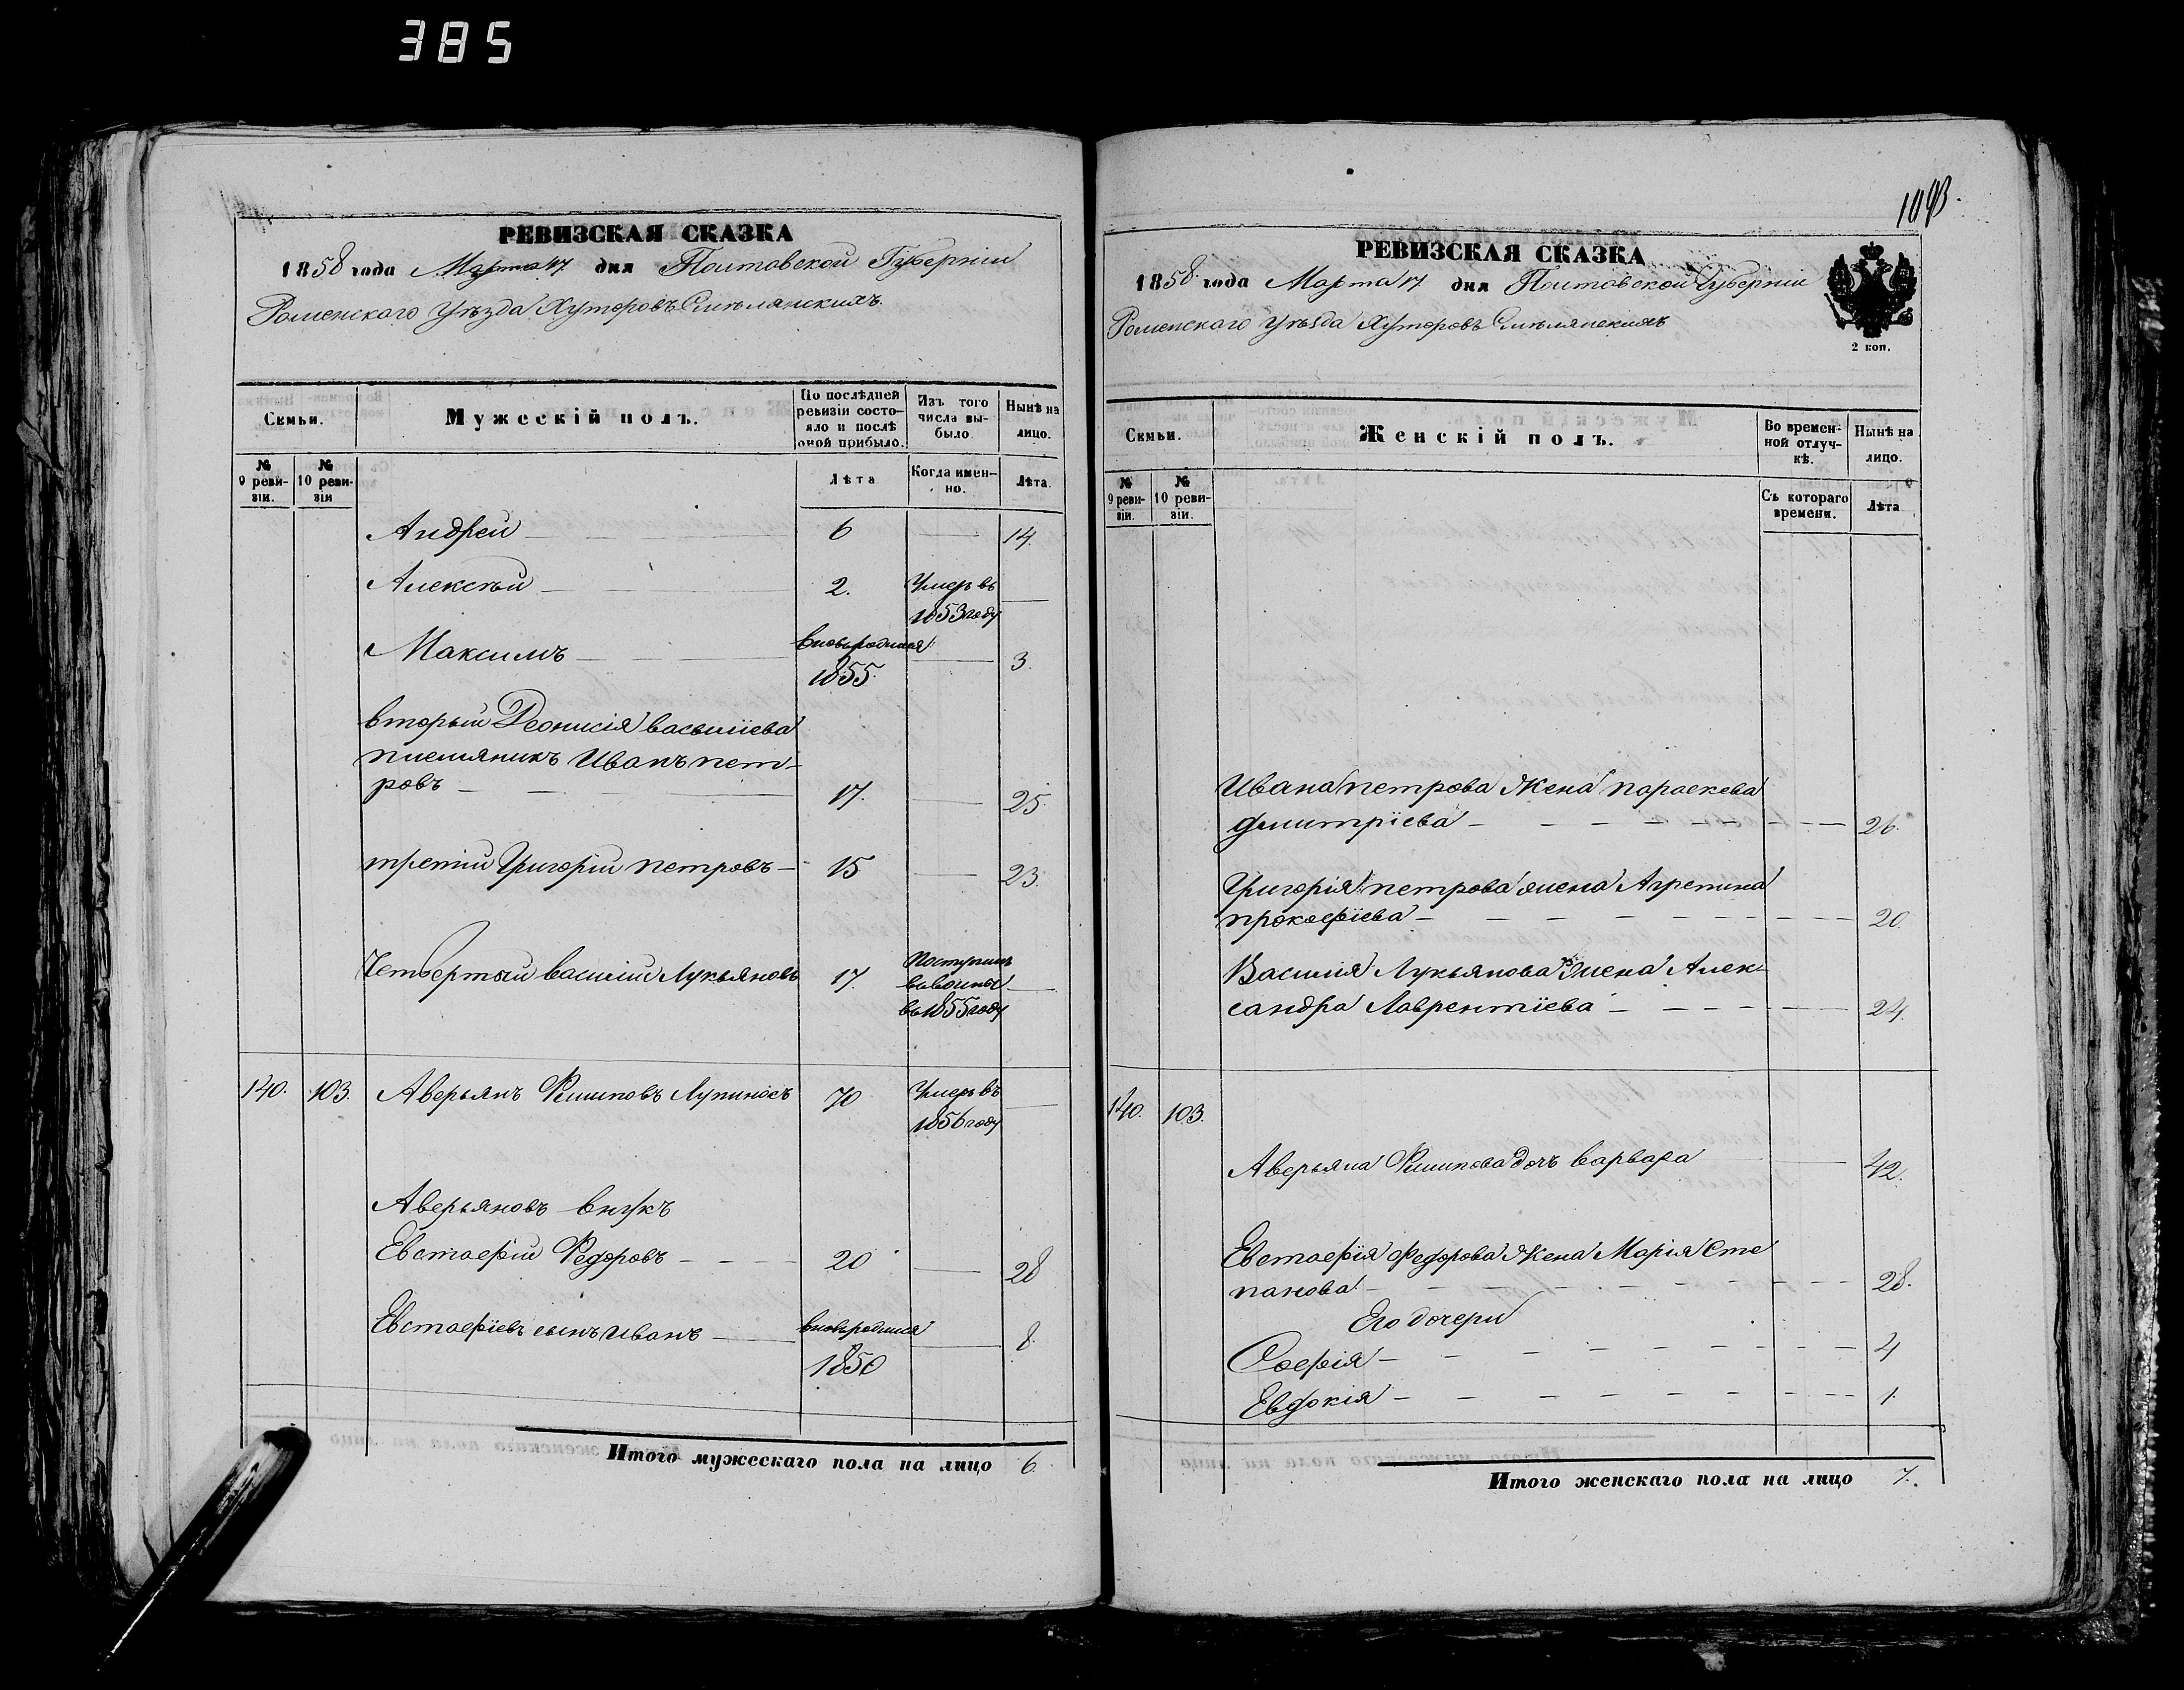 385
РЕВИЗСКАЯ СКАЗКА
1858 года Марта 17 дня Полтавской Губерніи
Роменскаго Уѣзда Хуторовъ Смѣлянскихъ.
Семьи.
Мужескій полъ.
По послѣдней ревизіи состояло и послѣ оной прибыло.
Изъ того числа выбыло.
Нынѣ на лицо.
№ 9 ревизіи.
№ 10 ревизіи
Лѣта
Когда именно.
Лѣта.
Андрей — 6 — 14.
Алексѣй — 2. Умеръ въ
1853 году
Максимъ — вновьродился — 3.
1855.
вторый Деонисія васьиліева
племяникъ Иванъ пет-
ровъ — 17. — 25.
третій Григорій петровъ — 15 — 23.
Четвертый василій Лукьяновъ 17. Поступилъ
въ 1855 году
140. 103. Аверьянъ Филиповъ Лупиносъ 70 Умеръ въ
1856 году
Аверьяновъ внукъ
Евстафій Федоровъ — 20 — 28
Евстафіевъ сынъ Иванъ — вновьродился — 8.
1850
Итого мужескаго пола на лицо 6.
1093.
РЕВИЗСКАЯ СКАЗКА
1858 года Марта 17 дня Полтавской Губерніи
Роменскаго уѣзда Хуторовъ Смѣлянскихъ
2 коп.
Семьи.
Женскій полъ.
Во временной отлучкѣ.
Нынѣ на лицо.
№ 9 ревизіи.
№ 10 ревизіи.
Съ котораго времени.
Лѣта
Ивана петрова Жена параскева
димитріева — 26.
Григорія петрова жена Агрепина
прокофіева — 20.
Василія Лукьянова жена Алек-
сандра Лаврентіева — 24.
140. 103.
Аверьяна Филипова дочь варвара — 42.
Евстафія Федорова Жена Марія Сте
панова — 28.
Его дочери
Софія — 4
Евдокія — 1.
Итого женскаго пола на лицо 7.